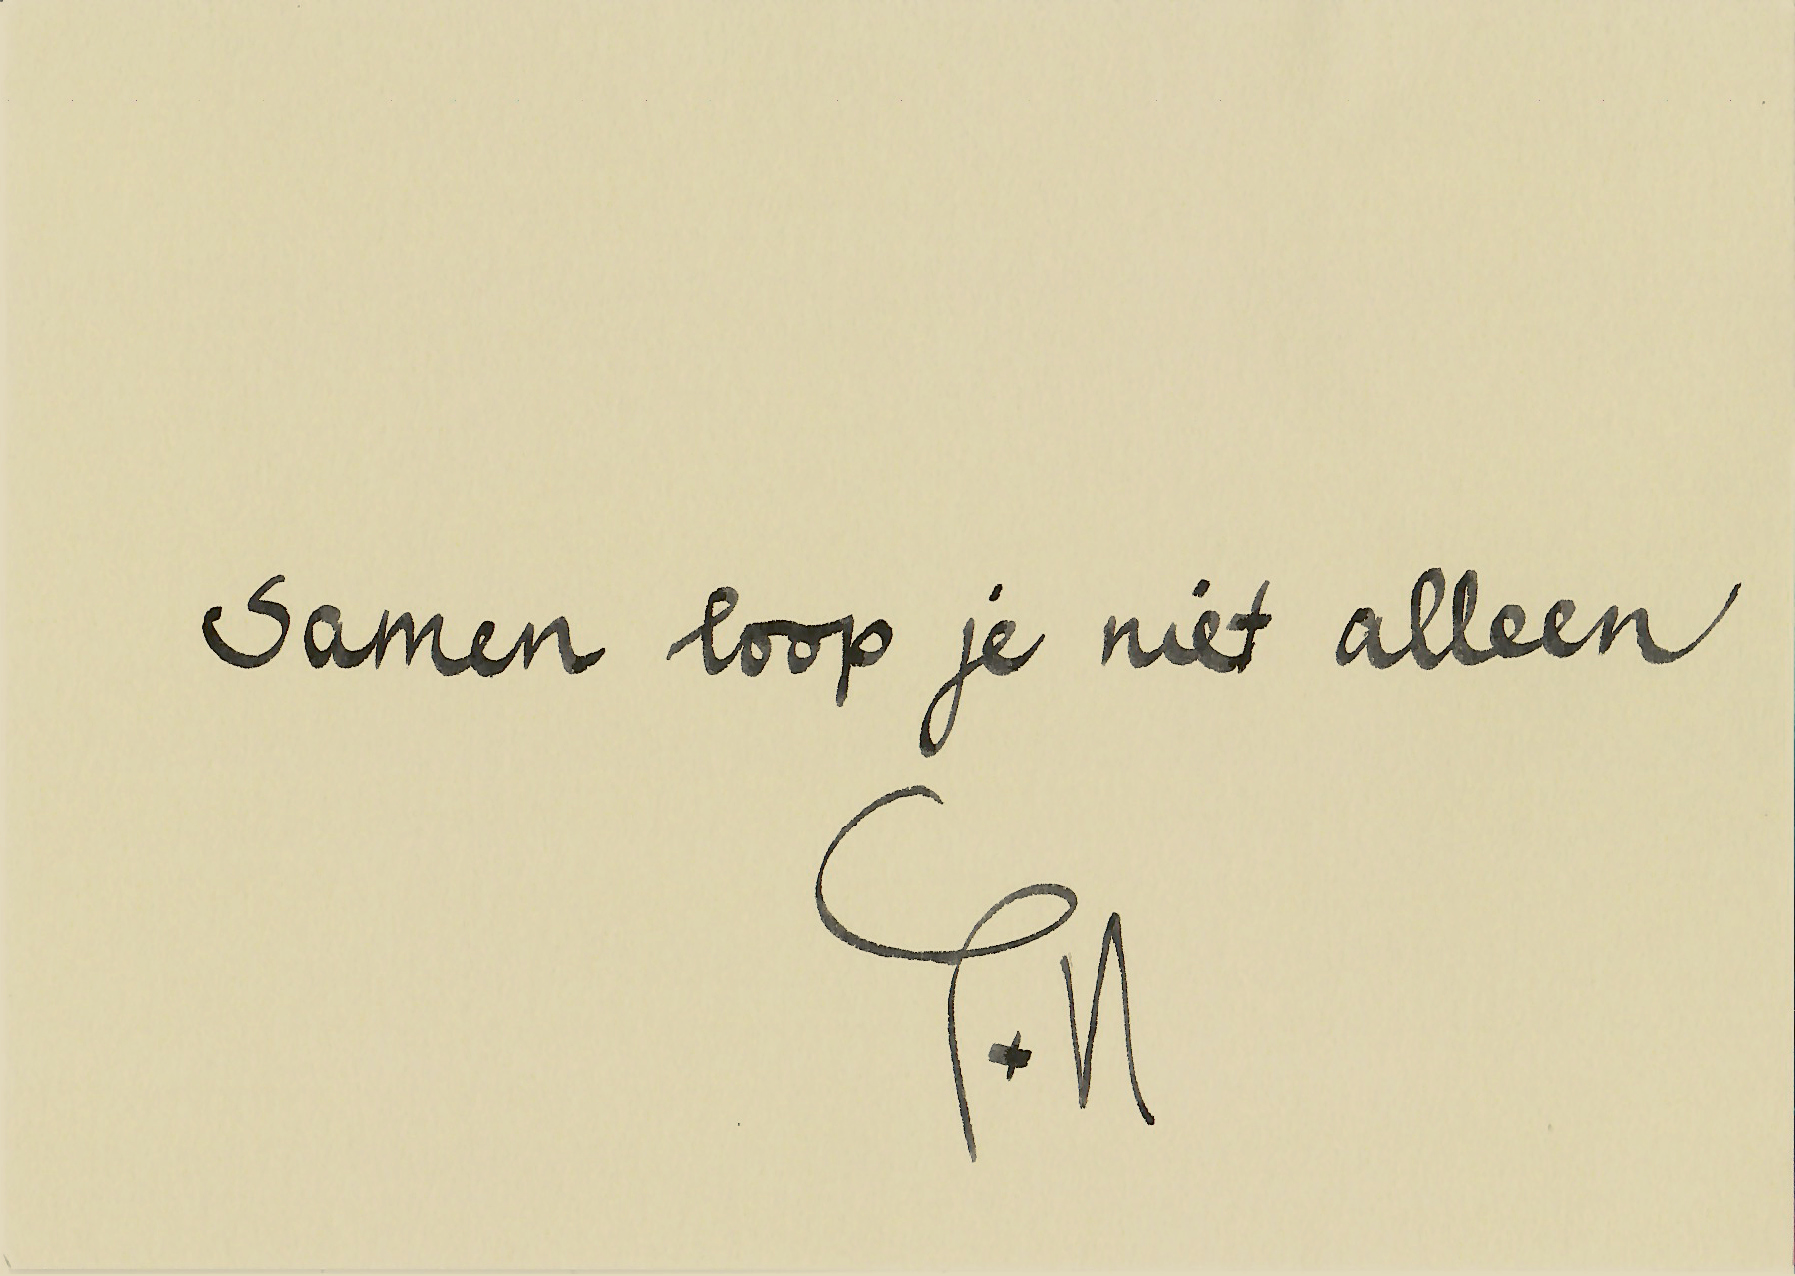 Samen loop je niet alleen